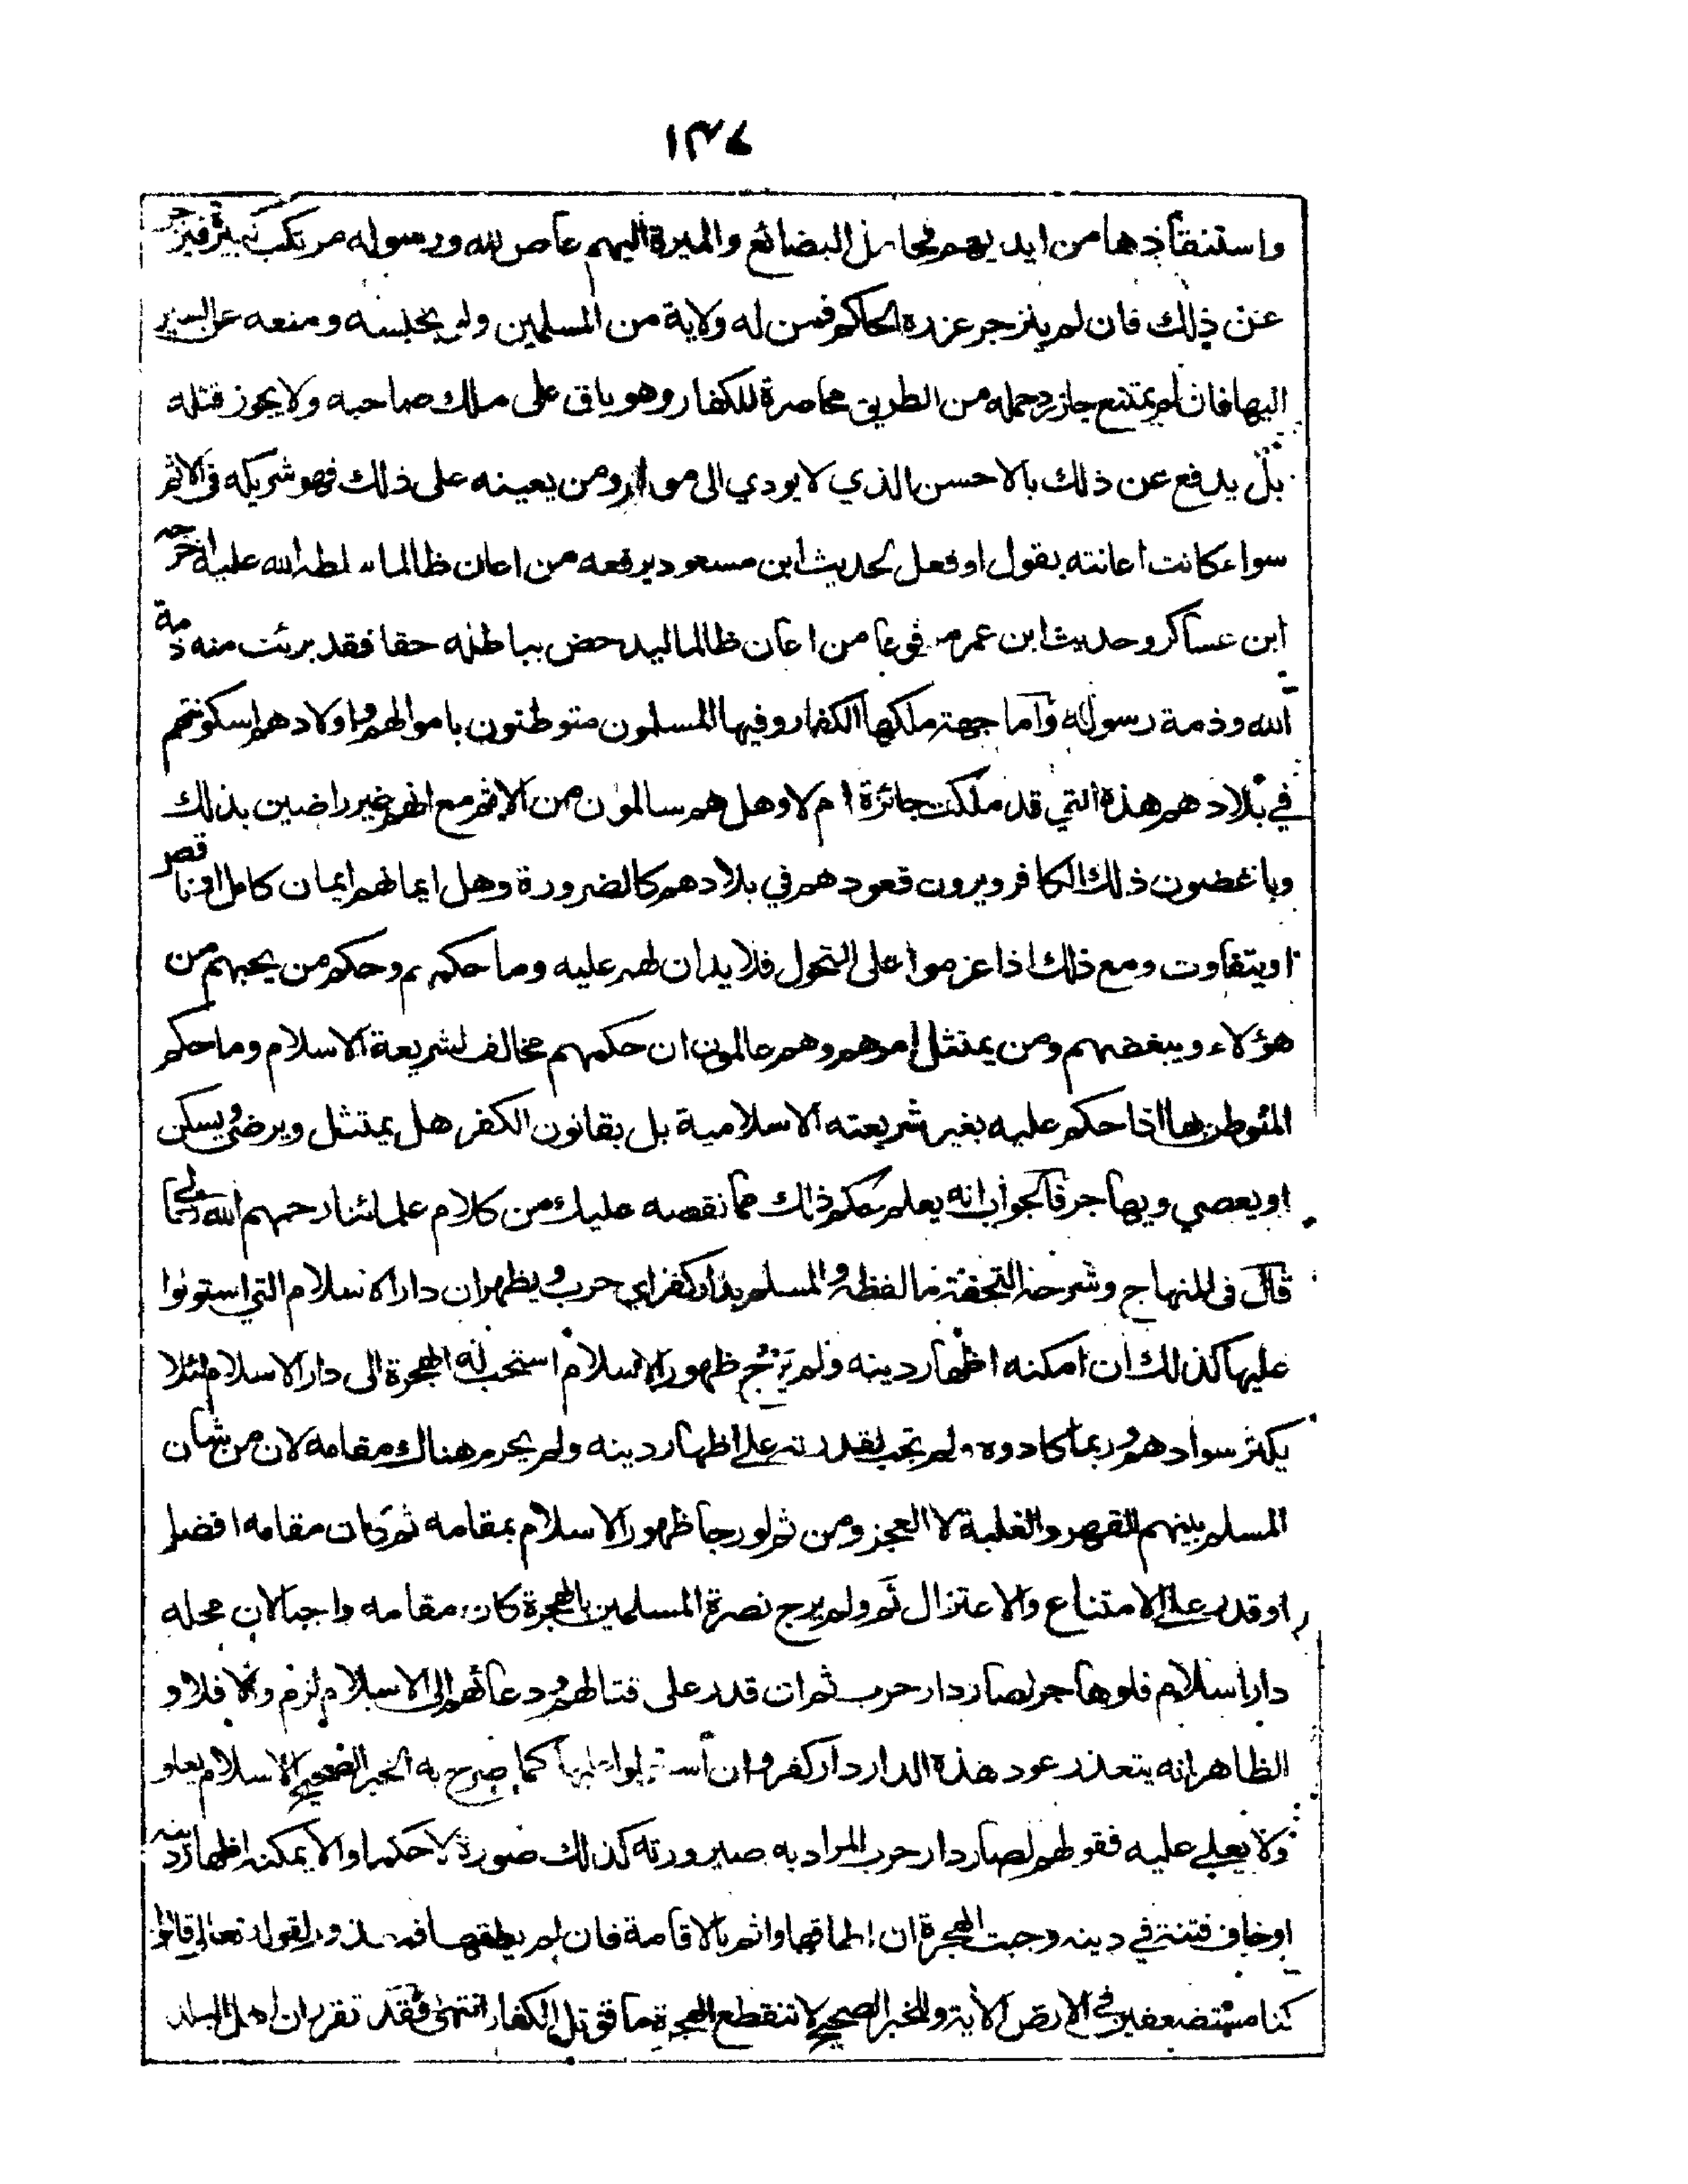 ١٣٧
واستنقاذها من ايديهم البضائع والميرة اليهم عاص لله ورسوله مرتكب
عن ذلك فان لم ينزجر عزره الحاكم فمن له ولاية من المسلمين ولو بحبسه ومنعه عن السير
اليها فان لم يمتنع جاز رد حمله من الطريق محاصرة للكفار وهو باق على ملك صاحبه ولا يجوز قتله
بل يدفع عن ذلك بالاحسن الذي لا يودي الى ومن يعينه على ذلك فهو شريكه في الاثم
سواء كانت اعانته بقول او فعل لحديث ابن مسعود يرفعه من اعان ظالما سلطه الله عليه اخرجه
ابن عساكر وحديث ابن عمر مرفوعا من اعان ظالما ليدحض بباطله حقا فقد برئت منه ذمة
الله وذمة رسوله واما جهة ملكها الكفار وفيها المسلمون متوطنون باموالهم واولادهم اسكونتهم
في بلادهم هذه التي قد ملكت جائزة ام لا وهل هم سالمون من الاثم مع انهم غير راضين بذلك
وباغضون ذلك الكافر ويرون قعودهم في بلادهم كالضرورة وهل ايمانهم ايمان كامل او ناقص
او يتفاوت ومع ذلك اذا عزموا على التحول فلا يدان لهم عليه وما حكمهم وحكم من يحبهم من
هؤلاء ويبغضهم ومن يمتثل امرهم وهم عالمون ان حكمهم مخالف لشريعة الاسلام وما حكم
المتوطن بها اذا حكم عليه بغير شريعته الاسلامية بل بقانون الكفر هل يمتثل ويرضى ويسكن
او يعصي ويهاجر فالجواب انه يعلم حكم ذلك مما نقصه عليك من كلام علمائنا رحمهم الله تعالى
قال في المنهاج وشرحه التحفة ما لفظه والمسلم بدار كفر اي حرب ويظهر ان دار الاسلام التي استولوا
عليها كذلك ان امكنه اظهار دينه ولم يرج ظهور الاسلام استحب له الهجرة الى دار الاسلام لئلا
يكثر سوادهم وربما كادوه ولم تجب لقدرته على اظهار دينه ولم يحرم هناك مقامه لان من شان
المسلم بينهم القهر والغلبة لا العجز ومن ثم لو رجا ظهور الاسلام بمقامه ثم كان مقامه افضل
او قدر على الامتناع والاعتزال ثم ولم يرج نصرة المسلمين بالهجرة كان مقامه واجبا لان محله
دار اسلام فلو هاجر لصار دار حرب ثم ان قدر على قتالهم ودعائهم الى الاسلام لزم والا فلا و
الظاهر انه يتعذر عود هذه الدار دار كفر وان استولوا عليها كما صرح به الخبر الصحيح الاسلام يعلو
ولا يعلى عليه فقولهم لصار دار حرب المراد به صيرورته كذلك صورة لا حكما والا يمكنه اظهار دينه
او خاف فتنة في دينه وجبت الهجرة ان اطاقها واثم بالاقامة فان لم يطقها فمعذور لقوله تعالى قالوا
كنا مستضعفين في الارض الآية والخبر الصحيح لا تنقطع الهجرة ما قوتل الكفار انتهى فقد تقرر ان اهل البلد